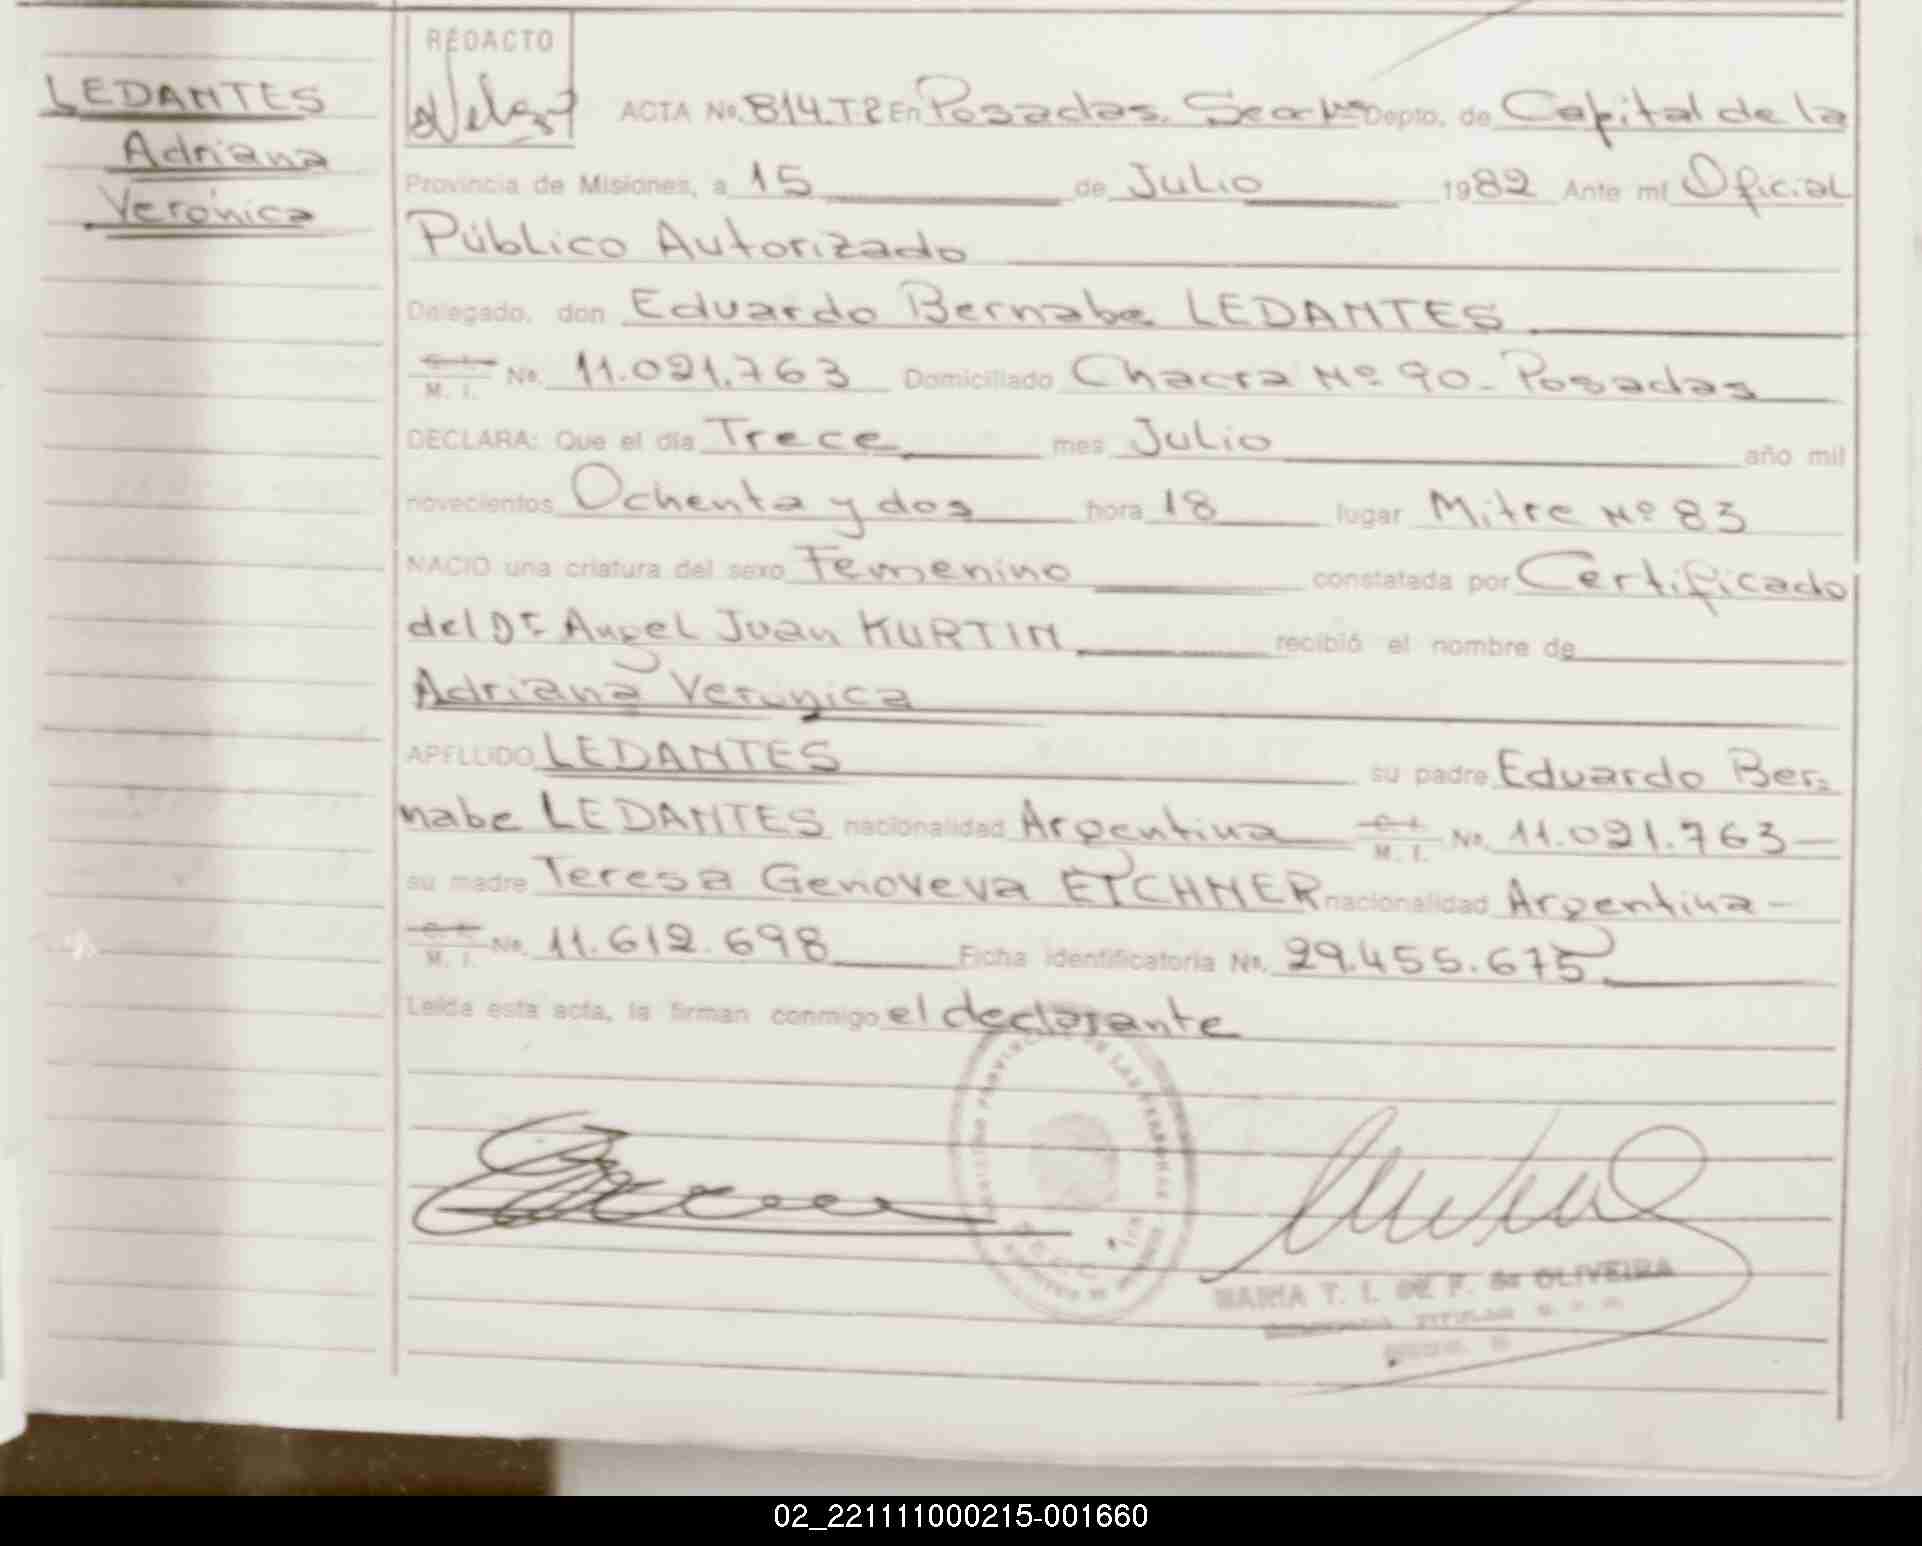 LEDANTES
Adriana
Verónica
REDACTO
ACTA No. 814.T2 En Posadas. Depto. de Capital de la
Provincia de Misiones, a 15 de Julio 1982 Ante mí Oficial
Público Autorizado
Delegado, don Eduardo Bernabe LEDANTES
C. I. M. I. No. 11.021.763 Domiciliado Chacra Nº 90 - Posadas
DECLARA: Que el día Trece mes Julio año mil
novecientos Ochenta y dos hora 18 lugar Mitre Nº 83
NACIO una criatura del sexo Femenino constatada por Certificado
del Dr. Angel Juan KURTIN recibió el nombre de
Adriana Verónica
APELLIDO LEDANTES su padre Eduardo Ber=
nabe LEDANTES nacionalidad Argentina C. I. M. I. No. 11.021.763 —
su madre Teresa Genoveva ETCHNER nacionalidad Argentina -
C. I. M. I. No. 11.612.698 Ficha identificatoria No. 29.455.675
Leída esta acta, la firman conmigo el declarante
MARIA T. I. DE F. de OLIVEIRA
02_221111000215-001660